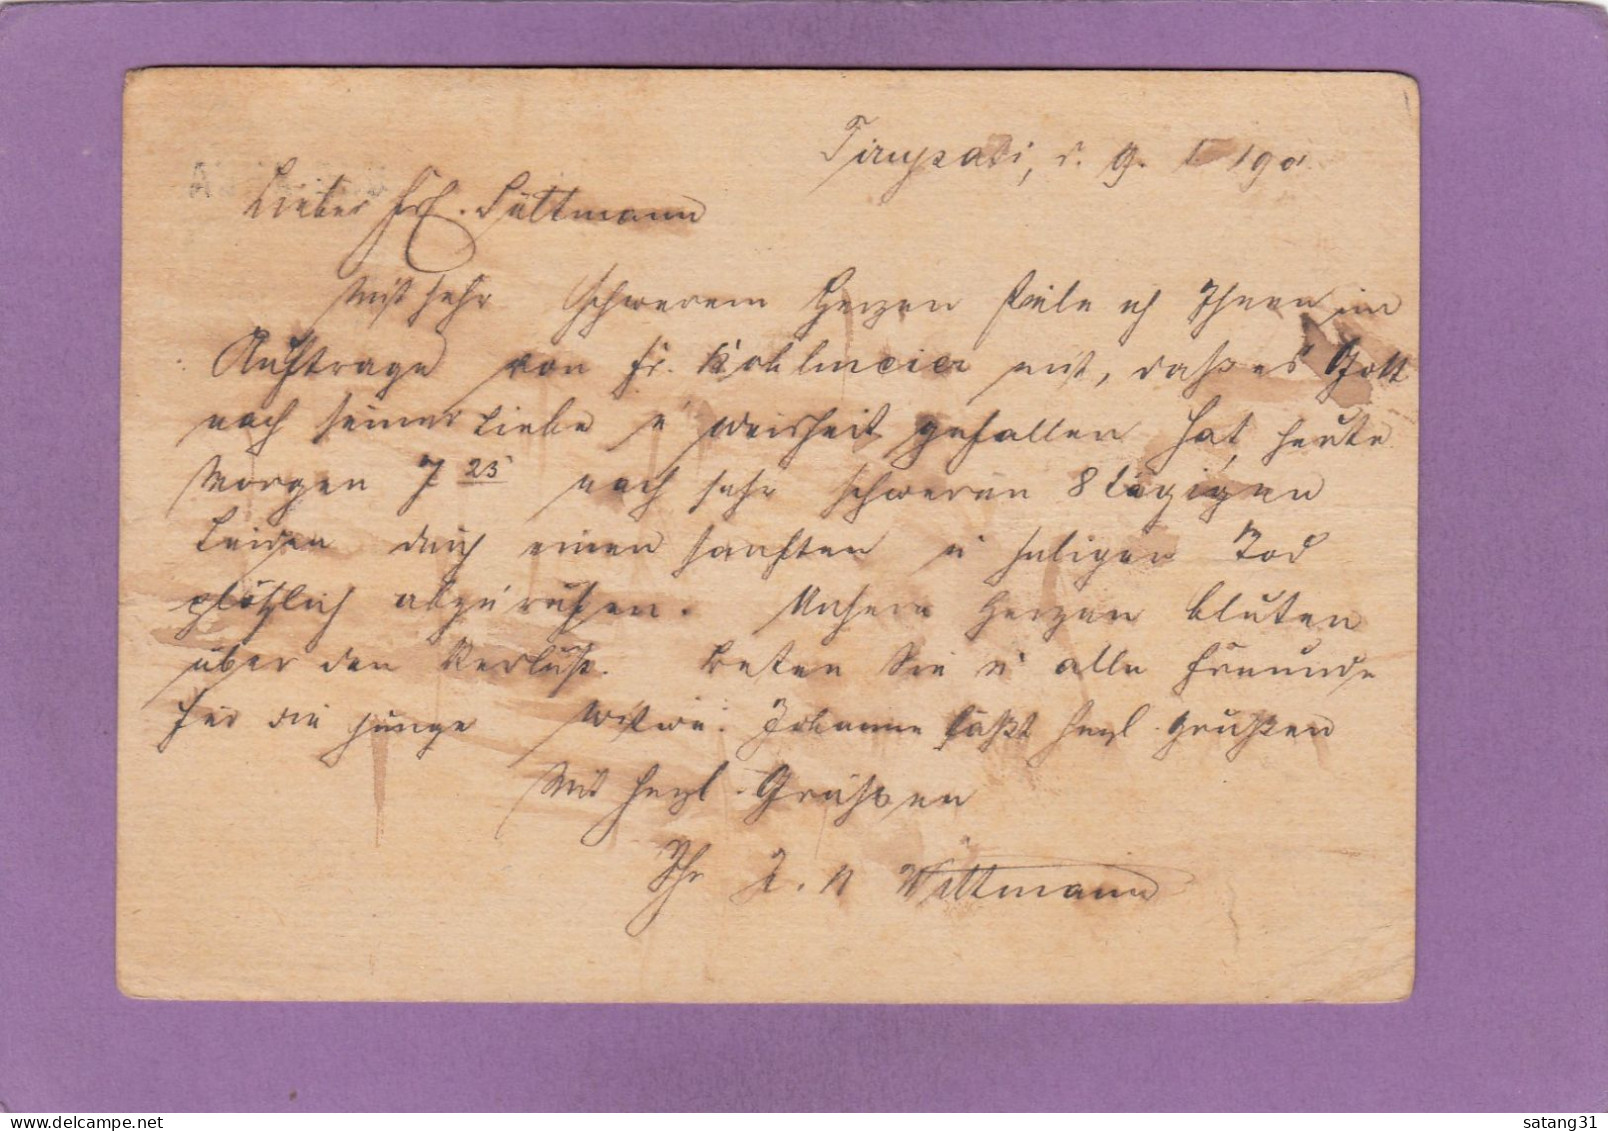 Tirupati, d. 9. I 190
Lieber Frl. Süttmann
Mit sehr schwerem Herzen theile ich Ihnen im
Auftrage von Fr. Kohlmeier mit, daß es Gott
nach seiner Liebe u Weisheit gefallen hat, heute
Morgen 7 25 nach sehr schweren 8 tägigen
Leiden durch einen sanften u seligen Tod
plötzlich abzurufen. Unsere Herzen bluten
über den Verlust. Beten Sie u alle Freunde
für die junge Witwe. Johanne läßt herzl. grüßen
Mit herzl. Grüßen
Ihr Wittmann
satang31